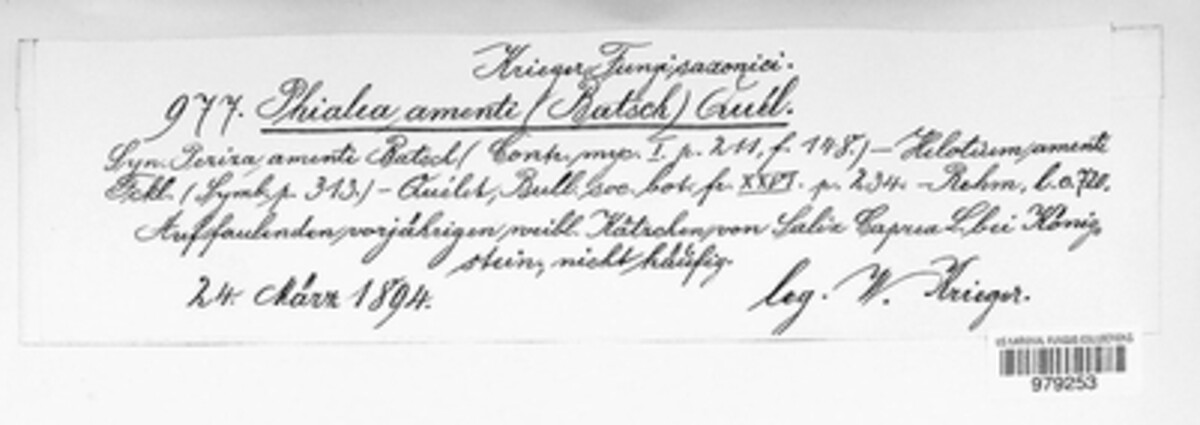 Krieger, Fungi saxonici.
977. Phialea amenti (Batsch) Quél.
Syn. Peziza amenti Batsch (Contr. myc. I. p. 211, f. 148.) – Helotium amenti
Fckl. (Symb. p. 313.) – Quélet, Bull. soc. bot. fr. XXVI. p. 234. – Rehm, l. c. 720.
Auf faulenden vorjährigen weibl. Kätzchen von Salix Caprea L. bei König-
stein, nicht häufig.
24. März 1894.
leg. W. Krieger.
US NATIONAL FUNGUS COLLECTIONS
979253